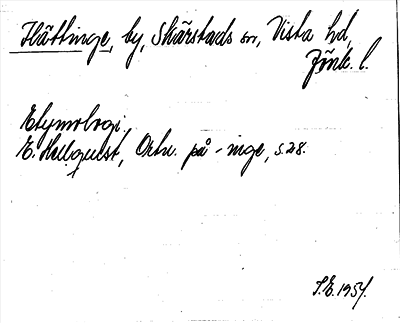 Hättinge, by, Skärstads sn, Vista hd,
Jönk. l.
Etymologi.
E. Hellquist, Ortn. på -inge, s. 28.
S.E. 1954.